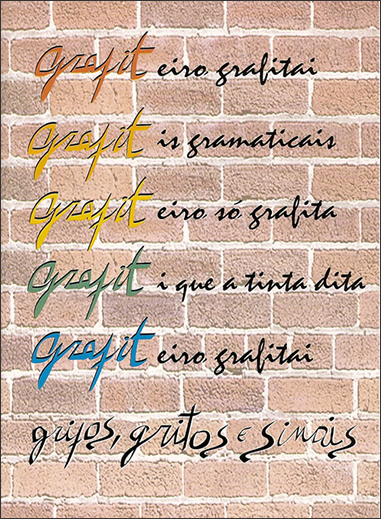 grafit eiro grafitai
grafit is gramaticais
grafit eiro só grafita
grafit i que a tinta dita
grafit eiro grafitai
grifos, gritos e sinais